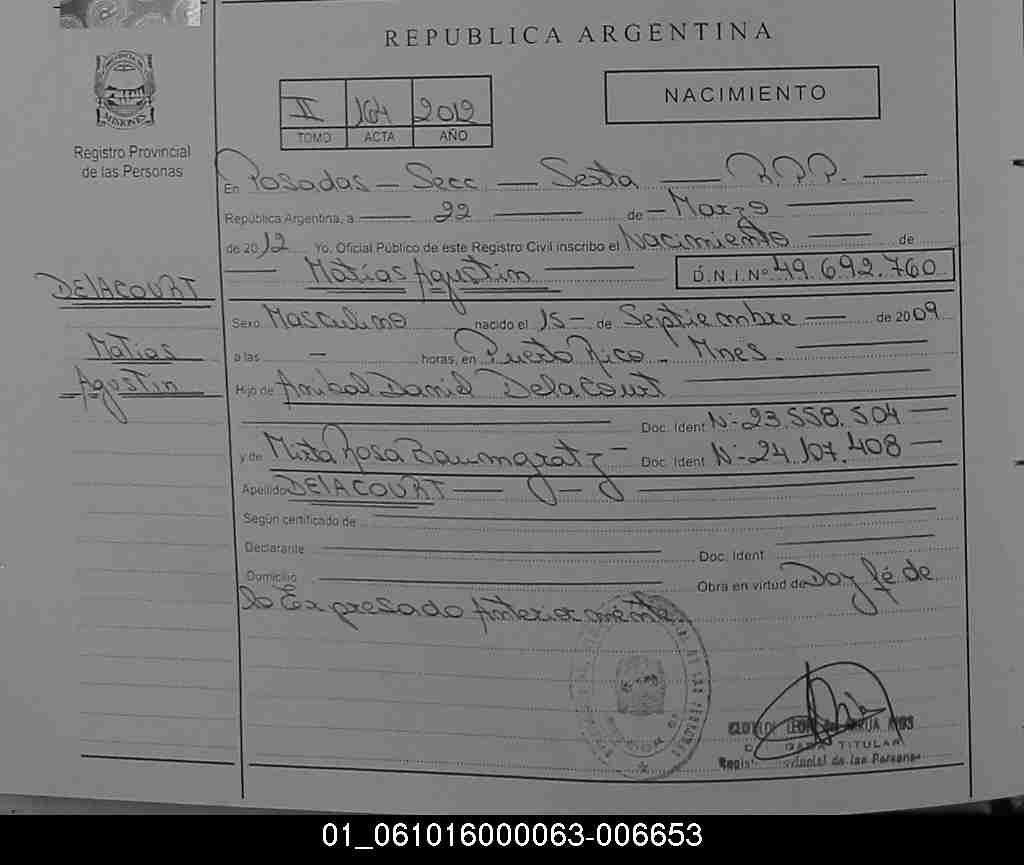 REPUBLICA ARGENTINA
MISIONES
Registro Provincial
de las Personas
II 164 2012
TOMO ACTA AÑO
NACIMIENTO
En Posadas - Secc - Sexta - R.P.P. -
República Argentina, a - 22 - de - Marzo -
de 2012 Yo, Oficial Público de este Registro Civil inscribo el Nacimiento - de
- Matias Agustin - D.N.I Nº 49.692.760
DELACOURT
Matias
Agustin
Sexo Masculino nacido el 15 - de Septiembre - de 2009
a las - horas, en Puerto Rico - Mnes. -
Hijo de Anibal Daniel Delacourt -
Doc. Ident N- 23.558.504 -
y de Mirta Rosa Baumgratz - Doc. Ident N- 24.107.408 -
Apellido DELACOURT -
Según certificado de
Declarante Doc. Ident
Domicilio Obra en virtud de Doy fé de
lo Expresado Anteriormente.
TITULAR
de las Personas
01_061016000063-006653